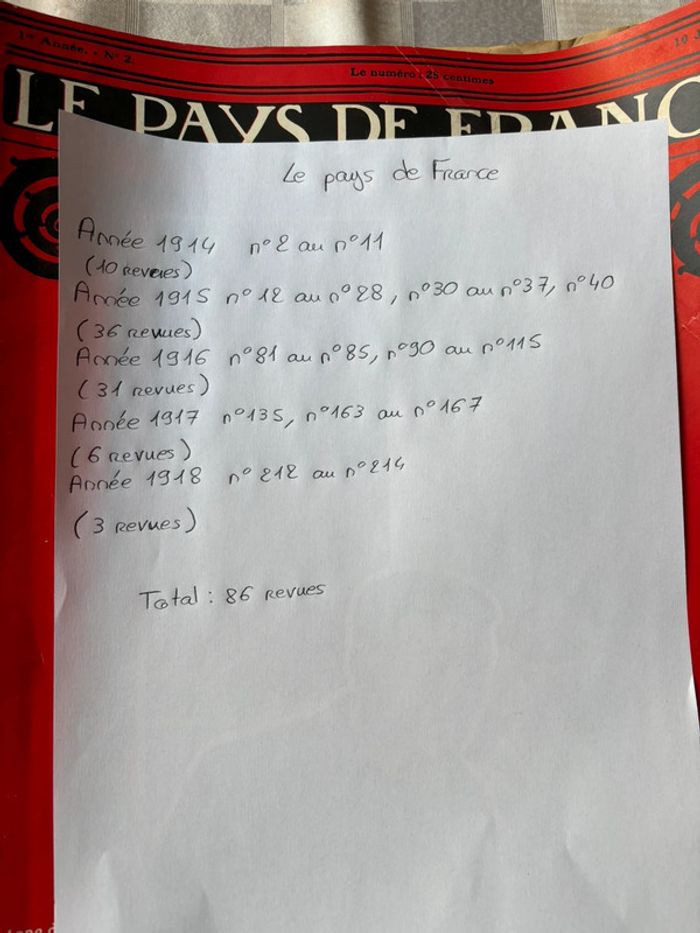 1re Année. - N° 2.
Le numéro : 25 centimes
10 J
LE PAYS DE FRANC
Le pays de France
Année 1914 n°2 au n°11
(10 revues)
Année 1915 n°12 au n°28, n°30 au n°37, n°40
(36 revues)
Année 1916 n°81 au n°85, n°90 au n°115
(31 revues)
Année 1917 n°135, n°163 au n°167
(6 revues)
Année 1918 n°212 au n°214
(3 revues)
Total : 86 revues